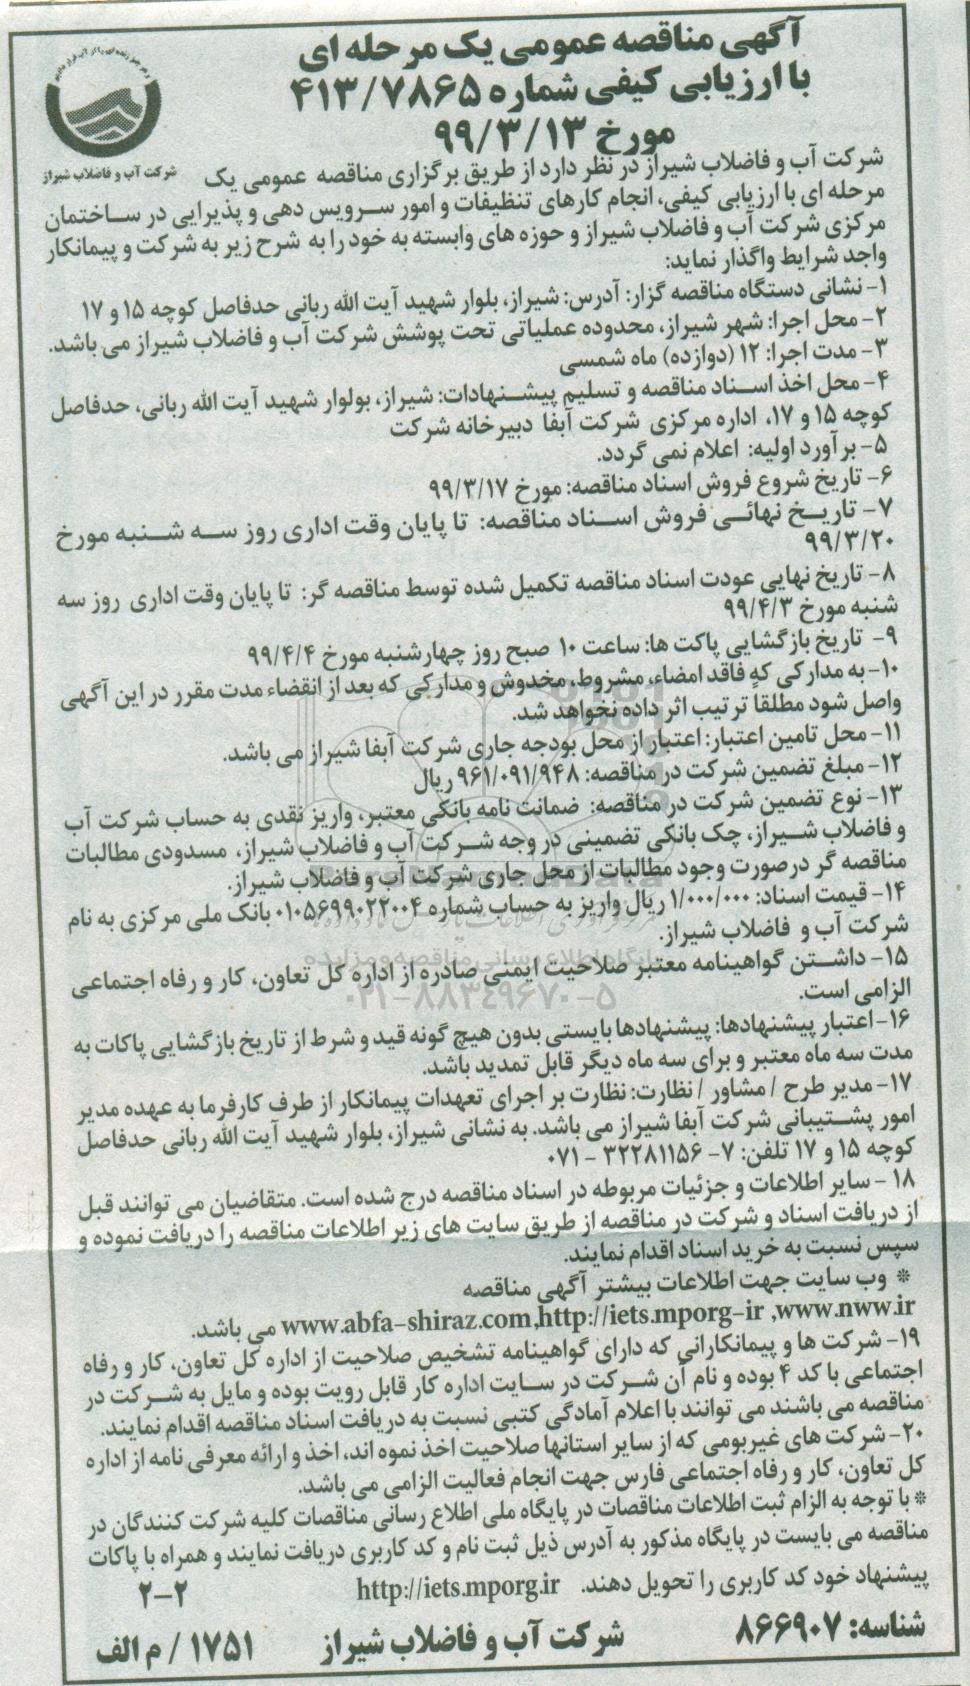 آگهی مناقصه عمومی یک مرحله ای
با ارزیابی کیفی شماره ۴۱۳/۷۸۶۵
مورخ ۹۹/۳/۱۳
شرکت آب و فاضلاب شیراز
شرکت آب و فاضلاب شیراز در نظر دارد از طریق برگزاری مناقصه عمومی یک
مرحله ای با ارزیابی کیفی، انجام کارهای تنظیفات و امور سرویس دهی و پذیرایی در ساختمان
مرکزی شرکت آب و فاضلاب شیراز و حوزه های وابسته به خود را به شرح زیر به شرکت و پیمانکار
واجد شرایط واگذار نماید:
۱- نشانی دستگاه مناقصه گزار: آدرس: شیراز، بلوار شهید آیت الله ربانی حدفاصل کوچه ۱۵ و ۱۷
۲- محل اجرا: شهر شیراز، محدوده عملیاتی تحت پوشش شرکت آب و فاضلاب شیراز می باشد.
۳- مدت اجرا: ۱۲ (دوازده) ماه شمسی
۴- محل اخذ اسناد مناقصه و تسلیم پیشنهادات: شیراز، بولوار شهید آیت الله ربانی، حدفاصل
کوچه ۱۵ و ۱۷، اداره مرکزی شرکت آبفا دبیرخانه شرکت
۵- برآورد اولیه: اعلام نمی گردد.
۶- تاریخ شروع فروش اسناد مناقصه: مورخ ۹۹/۳/۱۷
۷- تاریخ نهائی فروش اسناد مناقصه: تا پایان وقت اداری روز سه شنبه مورخ
۹۹/۳/۲۰
۸- تاریخ نهایی عودت اسناد مناقصه تکمیل شده توسط مناقصه گر: تا پایان وقت اداری روز سه
شنبه مورخ ۹۹/۴/۳
۹- تاریخ بازگشایی پاکت ها: ساعت ۱۰ صبح روز چهارشنبه مورخ ۹۹/۴/۴
۱۰- به مدارکی که فاقد امضاء، مشروط، مخدوش و مدارکی که بعد از انقضاء مدت مقرر در این آگهی
واصل شود مطلقاً ترتیب اثر داده نخواهد شد.
۱۱- محل تامین اعتبار: اعتبار از محل بودجه جاری شرکت آبفا شیراز می باشد.
۱۲- مبلغ تضمین شرکت در مناقصه: ۹۶۱/۰۹۱/۹۴۸ ریال
۱۳- نوع تضمین شرکت در مناقصه: ضمانت نامه بانکی معتبر، واریز نقدی به حساب شرکت آب
و فاضلاب شیراز، چک بانکی تضمینی در وجه شرکت آب و فاضلاب شیراز، مسدودی مطالبات
مناقصه گر درصورت وجود مطالبات از محل جاری شرکت آب و فاضلاب شیراز.
۱۴- قیمت اسناد: ۱/۰۰۰/۰۰۰ ریال واریز به حساب شماره ۰۱۰۵۶۹۹۰۲۲۰۰۴ بانک ملی مرکزی به نام
شرکت آب و فاضلاب شیراز.
۱۵- داشتن گواهینامه معتبر صلاحیت ایمنی صادره از اداره کل تعاون، کار و رفاه اجتماعی
الزامی است.
پایگاه اطلاع رسانی مناقصه و مزایده
۰۲۱-۸۸۳۴۹۶۷۰-۵
۱۶- اعتبار پیشنهادها: پیشنهادها بایستی بدون هیچ گونه قید و شرط از تاریخ بازگشایی پاکات به
مدت سه ماه معتبر و برای سه ماه دیگر قابل تمدید باشد.
۱۷- مدیر طرح / مشاور / نظارت: نظارت بر اجرای تعهدات پیمانکار از طرف کارفرما به عهده مدیر
امور پشتیبانی شرکت آبفا شیراز می باشد. به نشانی شیراز، بلوار شهید آیت الله ربانی حدفاصل
کوچه ۱۵ و ۱۷ تلفن: ۷- ۳۲۲۸۱۱۵۶ - ۰۷۱
۱۸ - سایر اطلاعات و جزئیات مربوطه در اسناد مناقصه درج شده است. متقاضیان می توانند قبل
از دریافت اسناد و شرکت در مناقصه از طریق سایت های زیر اطلاعات مناقصه را دریافت نموده و
سپس نسبت به خرید اسناد اقدام نمایند.
* وب سایت جهت اطلاعات بیشتر آگهی مناقصه
www.abfa-shiraz.com,http://iets.mporg-ir ,www.nww.ir می باشد.
۱۹- شرکت ها و پیمانکارانی که دارای گواهینامه تشخیص صلاحیت از اداره کل تعاون، کار و رفاه
اجتماعی با کد ۴ بوده و نام آن شرکت در سایت اداره کار قابل رویت بوده و مایل به شرکت در
مناقصه می باشند می توانند با اعلام آمادگی کتبی نسبت به دریافت اسناد مناقصه اقدام نمایند.
۲۰- شرکت های غیربومی که از سایر استانها صلاحیت اخذ نموه اند، اخذ و ارائه معرفی نامه از اداره
کل تعاون، کار و رفاه اجتماعی فارس جهت انجام فعالیت الزامی می باشد.
* با توجه به الزام ثبت اطلاعات مناقصات در پایگاه ملی اطلاع رسانی مناقصات کلیه شرکت کنندگان در
مناقصه می بایست در پایگاه مذکور به آدرس ذیل ثبت نام و کد کاربری دریافت نمایند و همراه با پاکات
پیشنهاد خود کد کاربری را تحویل دهند. http://iets.mporg.ir ۲-۲
شناسه: ۸۶۶۹۰۷ شرکت آب و فاضلاب شیراز ۱۷۵۱ / م الف